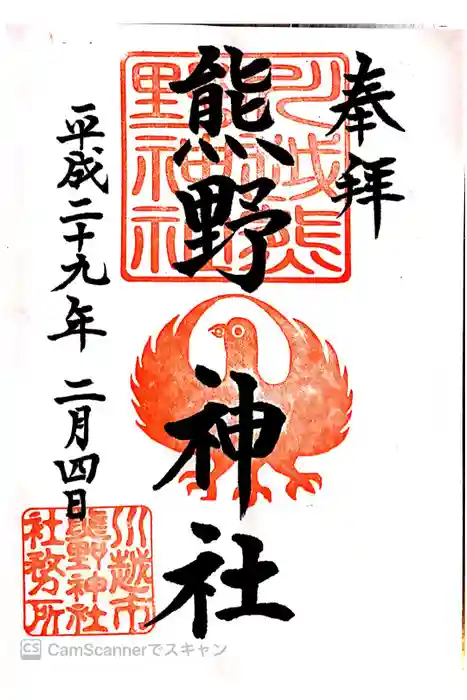 奉拝
川越熊
野神社
熊野神社
平成二十九年 二月四日
川越市
熊野神社
社務所
CS CamScannerでスキャン